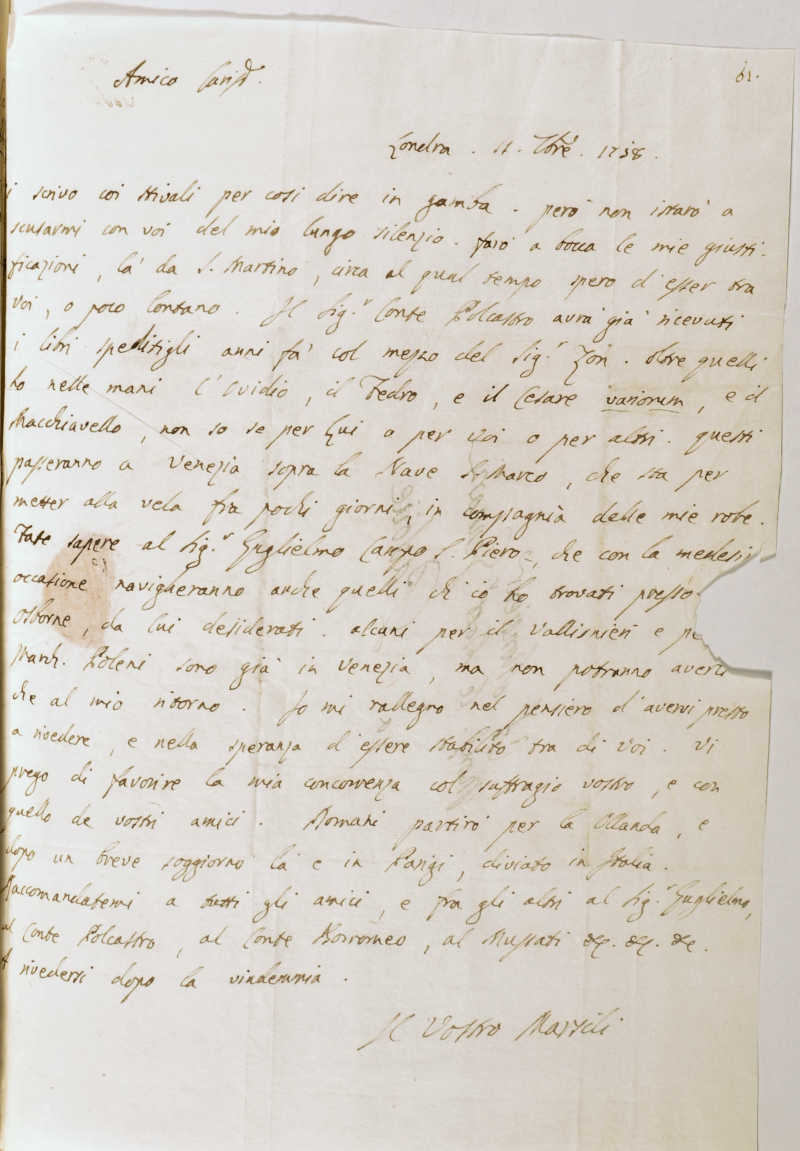 Amico Cariss.
61.
Londra . 11. 7bre . 1758 .
i scrivo coi stivali per cosi dire in gamba . però non istarò a
scusarmi con voi del mio lungo silenzio . farò a bocca le mie giusti-
ficazioni , là da S. Martino , circa al qual tempo spero d'esser tra
voi , o poco lontano . Il Sig.r Conte Polcastro avrà già ricevuti
i libri speditigli anni fà col mezzo del Sig.r Zon . oltre quelli
ho nelle mani l'Ovidio , il Fedro , e il Cesare variorum , e il
Macchiavello , non so se per Lui o per voi o per altri . questi
passeranno a Venezia sopra la Nave S. Marco , che sta per
metter alla vela fra pochi giorni , in compagnià delle mie robe .
Fate sapere al Sig.r Guglielmo Campo S. Piero , che con la medesi
occasione navigheranno anche quelli ch'io ho trovati presso
Osborne , da lui desiderati . alcuni per il Vallisnieri e pe
March. Poleni sono già in Venezia , ma non potranno averli
che al mio ritorno . Io mi rallegro nel pensiero d'avervi presto
a rivedere , e nella speranza d'essere stabilito tra di voi . Vi
prego di favorire la mia concorrenza col suffragio vostro , e con
quello de vostri amici . Domani partirò per la Ollanda , e
dopo un breve soggiorno là e in Parigi , diviato in Italia .
Raccomandatemi a tutti gli amici , e fra gli altri al Sig.r Guglielmo,
al Conte Polcastro , al Conte Borromeo , al Mussati &c. &c. &c.
A rivederci dopo la vindemmia .
Il Vostro Marsili